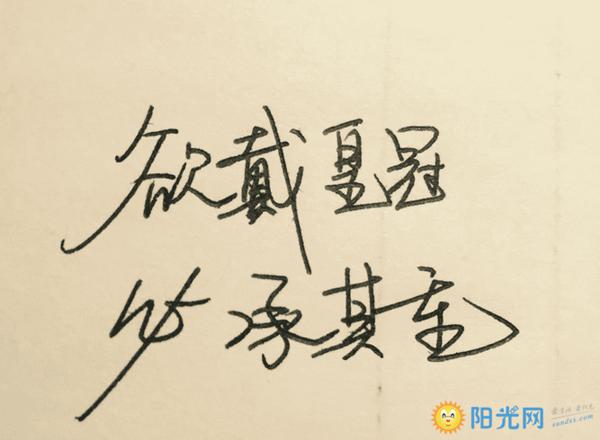 欲戴皇冠
必承其重
阳光网